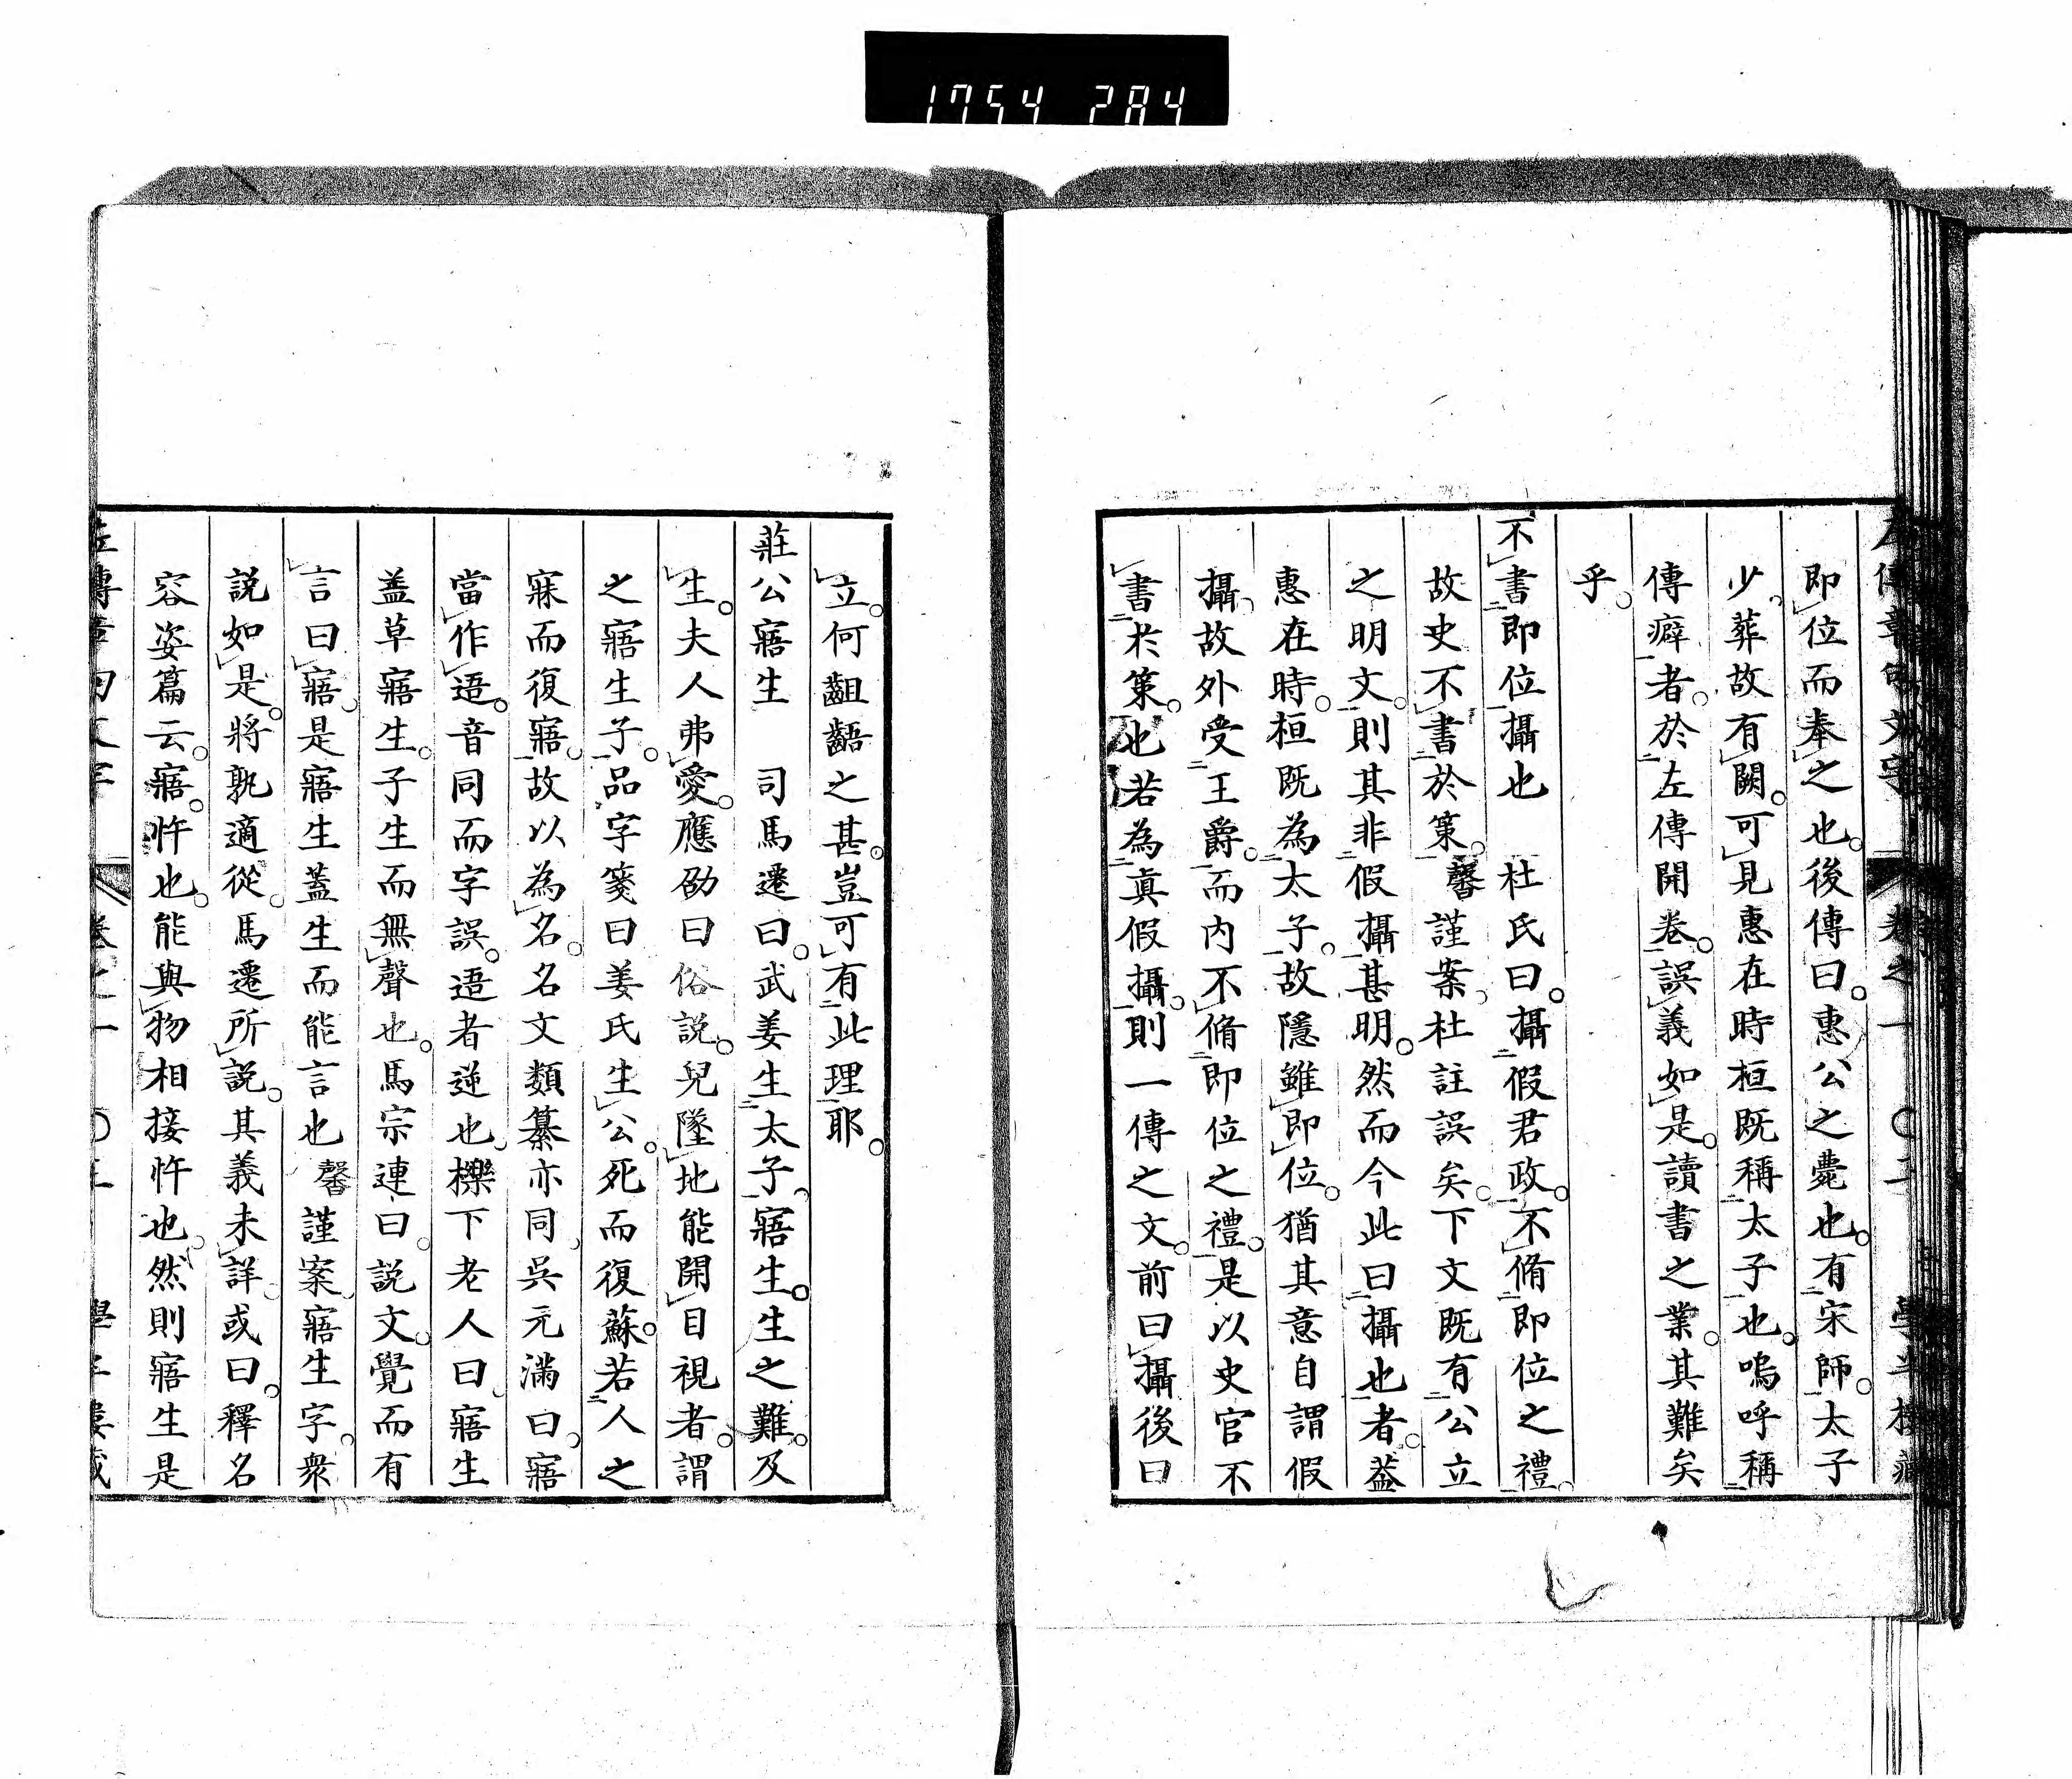 1754 284
左傳章句文字 卷之一 ○二 學半樓藏
即位而奉之也後傳曰惠公之薨也有宋師太子
少葬故有闕可見惠在時桓既稱太子也嗚呼稱
傳癖者於左傳開卷誤義如是讀書之業其難矣
乎
不書即位攝也 杜氏曰攝假君政不脩即位之禮
故史不書於策 馨謹案杜註誤矣下文既有公立
之明文則其非假攝甚明然而今此曰攝也者蓋
惠在時桓既為太子故隱雖即位猶其意自謂假
攝故外受王爵而内不脩即位之禮是以史官不
書於策也若為真假攝則一傳之文前曰攝後曰
立何齟齬之甚豈可有此理耶
莊公寤生 司馬遷曰武姜生太子寤生生之難及
生夫人弗愛應劭曰俗說兒墜地能開目視者謂
之寤生子品字箋曰姜氏生公死而復蘇若人之
寐而復寤故以為名名文類纂亦同吳元滿曰寤
當作逜音同而字誤逜者逆也櫟下老人曰寤生
蓋草寤生子生而無聲也馬宗連曰説文覺而有
言曰寤是寤生蓋生而能言也 馨謹案寤生字衆
説如是將孰適從馬遷所説其義未詳或曰釋名
容姿篇云寤忤也能與物相接忤也然則寤生是
左傳章句文字 卷之一 ○三 學半樓藏